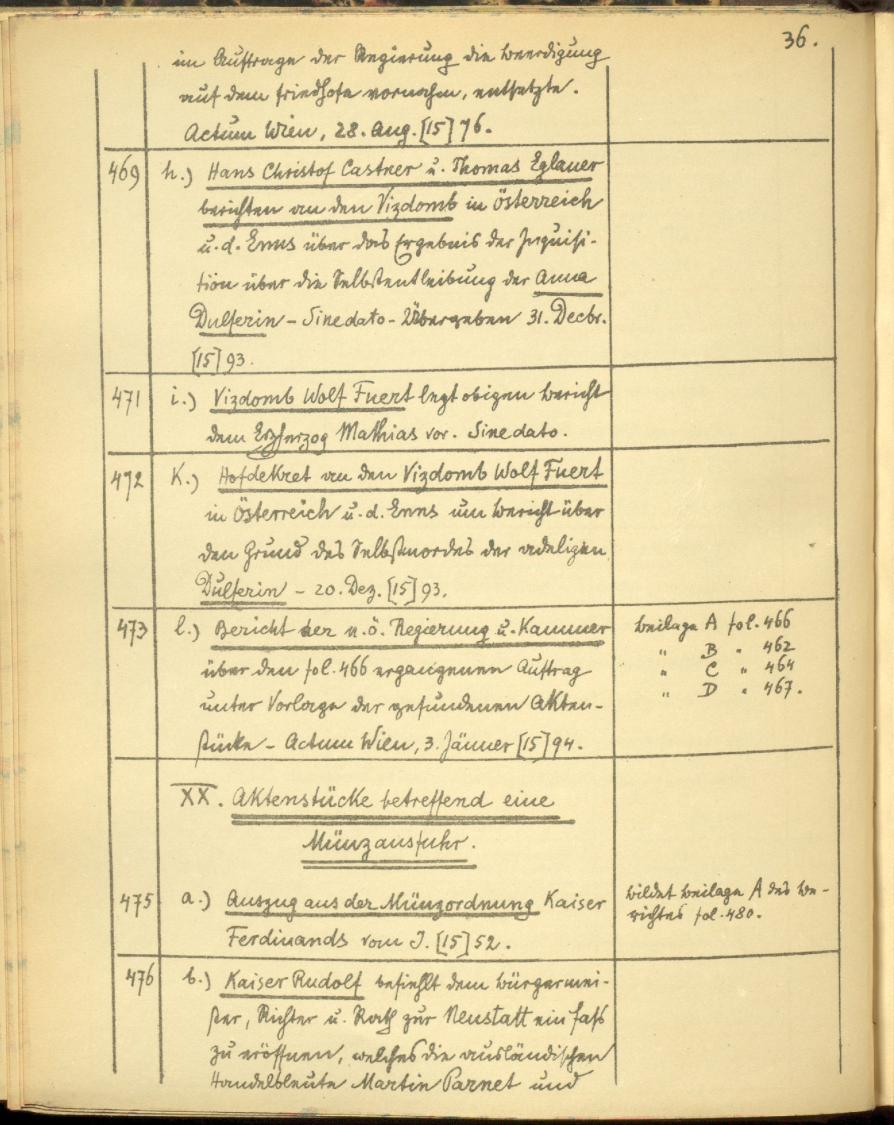 36.
im Auftrage der Regierung die Beerdigung
auf dem Friedhofe vornahm, entsetzte.
Actum Wien, 28. Aug. [15]76.
469 h.) Hans Christof Castner u. Thomas Eglauer
berichten an den Vizdomb in Österreich
u. d. Enns über das Ergebnis der Inquisi-
tion über die Selbstentleibung der Anna
Dulserin - Sine dato - Übergeben 31. Decbr.
[15]93.
471 i.) Vizdomb Wolf Fuert legt obigen Bericht
dem Erzherzog Mathias vor. Sine dato.
472 K.) Hofdekret an den Vizdomb Wolf Fuert
in Österreich u. d. Enns um Bericht über
den Grund des Selbstmordes der adeligen
Dulserin - 20. Dez. [15]93.
473 l.) Bericht der n. ö. Regierung u. Kammer
über den fol. 466 ergangenen Auftrag
unter Vorlage der gefundenen Akten-
stücke - Actum Wien, 3. Jänner [15]94.
Beilage A fol. 466
" B " 462
" C " 464
" D " 467.
XX. Aktenstücke betreffend eine
Münzausfuhr.
475 a.) Auszug aus der Münzordnung Kaiser
Ferdinands vom J. [15]52.
bildet Beilage A des Be-
richtes fol. 480.
476 b.) Kaiser Rudolf befiehlt dem Bürgermei-
ster, Richter u. Rath zur Neustatt ein Faß
zu eröffnen, welches die ausländischen
Handelsleute Martin Parnet und